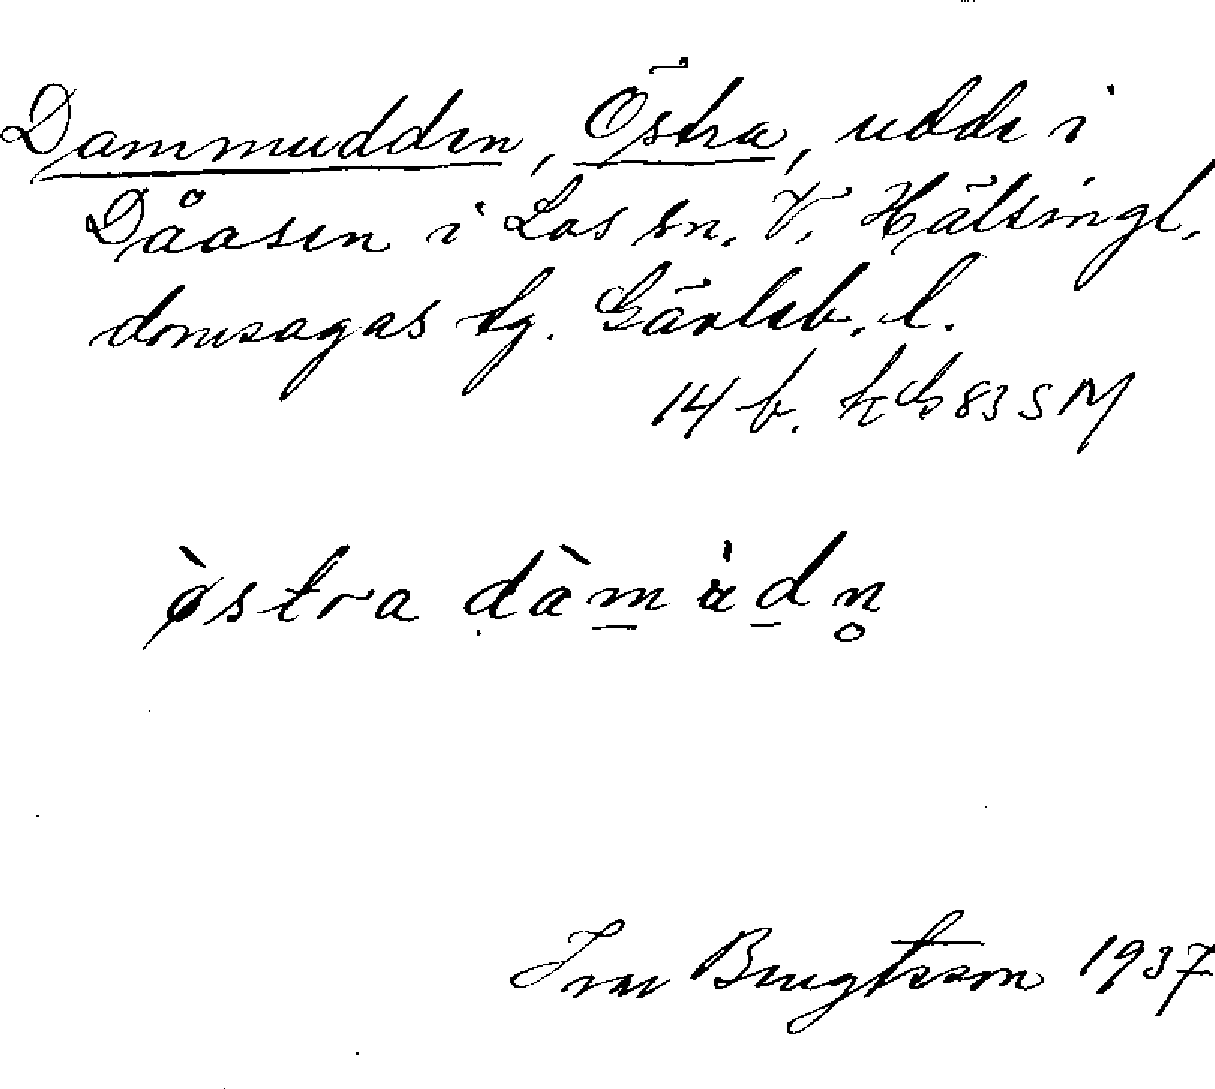 Dammudden, Östra, udde i
Dåasen i Los sn. V. Hälsingl.
domsagas tg. Gävleb. l.
14 b. kG 83 S M
östra dàmùdn̥
Ivar Bengtsson 1937